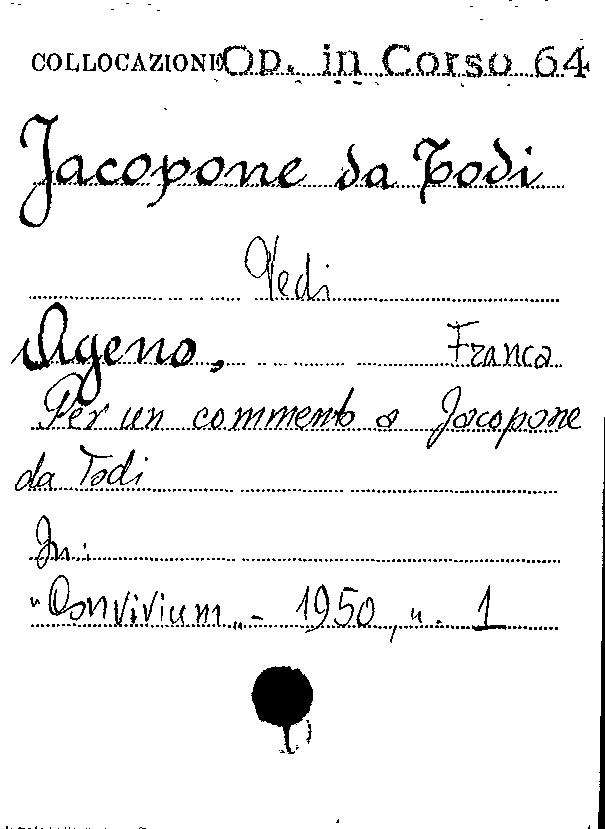 COLLOCAZIONE Op. in Corso 64
Jacopone da Todi
Vedi
Ageno, Franca
Per un commento a Jacopone
da Todi
In:
"Convivium" - 1950, n. 1